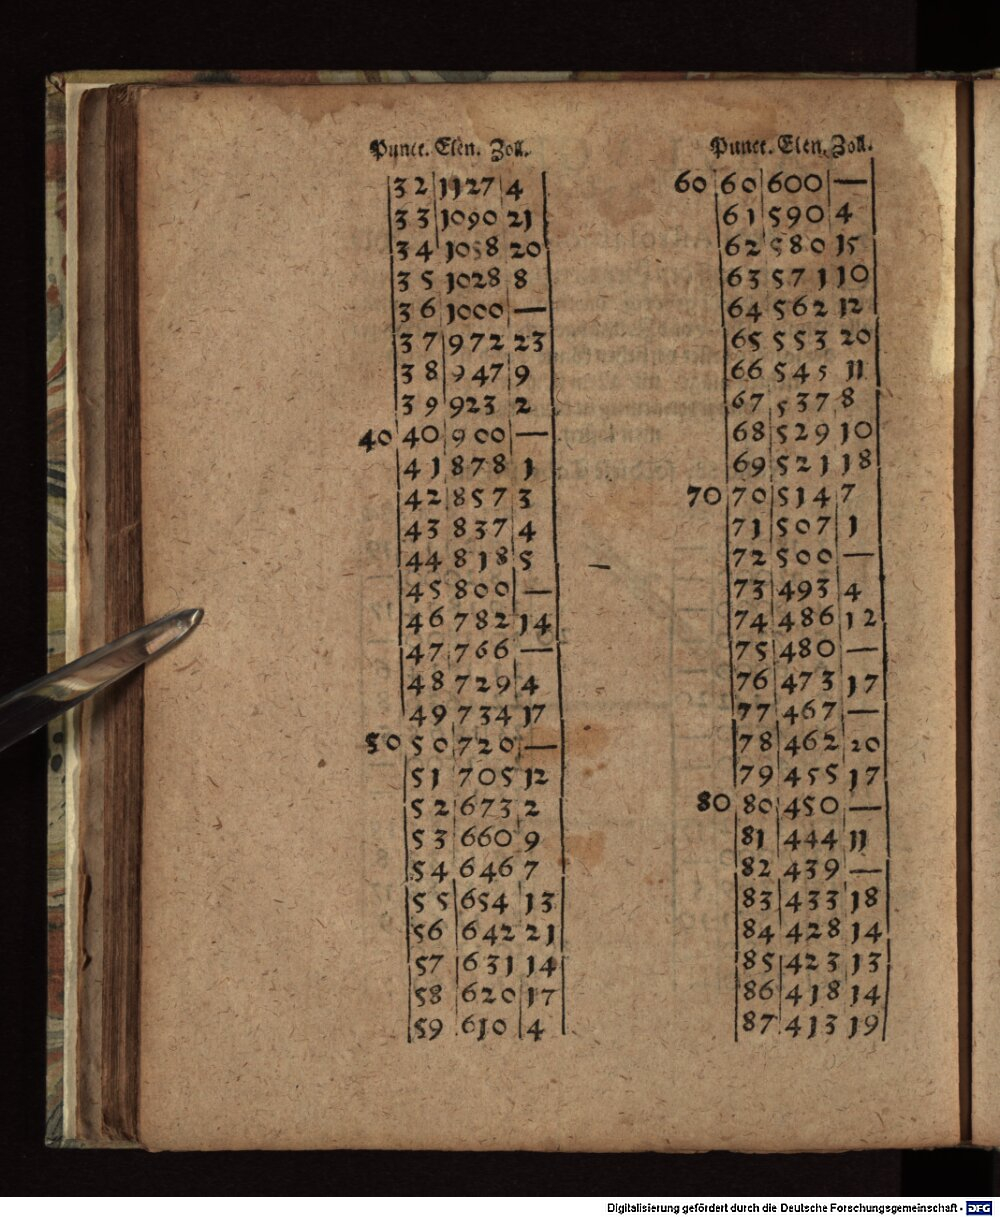 Punct. Elen. Zoll.
32 1127 4
33 1090 21
34 1058 20
35 1028 8
36 1000 —
37 972 23
38 947 9
39 923 2
40 40 900 —
41 878 1
42 857 3
43 837 4
44 818 5
45 800 —
46 782 14
47 766 —
48 729 4
49 734 17
50 50 720 —
51 705 12
52 673 2
53 660 9
54 646 7
55 654 13
56 642 21
57 631 14
58 620 17
59 610 4
Punct. Elen. Zoll.
60 60 600 —
61 590 4
62 580 15
63 571 10
64 562 12
65 553 20
66 545 11
67 537 8
68 529 10
69 521 18
70 70 514 7
71 507 1
72 500 —
73 493 4
74 486 12
75 480 —
76 473 17
77 467 —
78 462 20
79 455 17
80 80 450 —
81 444 11
82 439 —
83 433 18
84 428 14
85 423 13
86 418 14
87 413 19
Digitalisierung gefördert durch die Deutsche Forschungsgemeinschaft - DFG